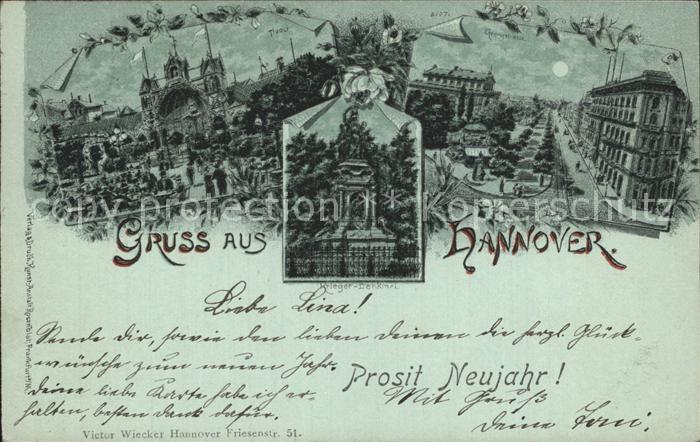 Tivoli
6107.
copy protection ** Kopierschutz
GRUSS AUS HANNOVER.
Krieger-Denkmal.
Liebe Lina!
Sende dir, sowie den lieben deinen die herzl. Glück-
wünsche zum neuen Jahr.
Prosit Neujahr!
Deine liebe Karte habe ich er-
halten, besten dank dafür.
Mit Gruß
deine Toni.
Victor Wiecker Hannover Friesenstr. 51.